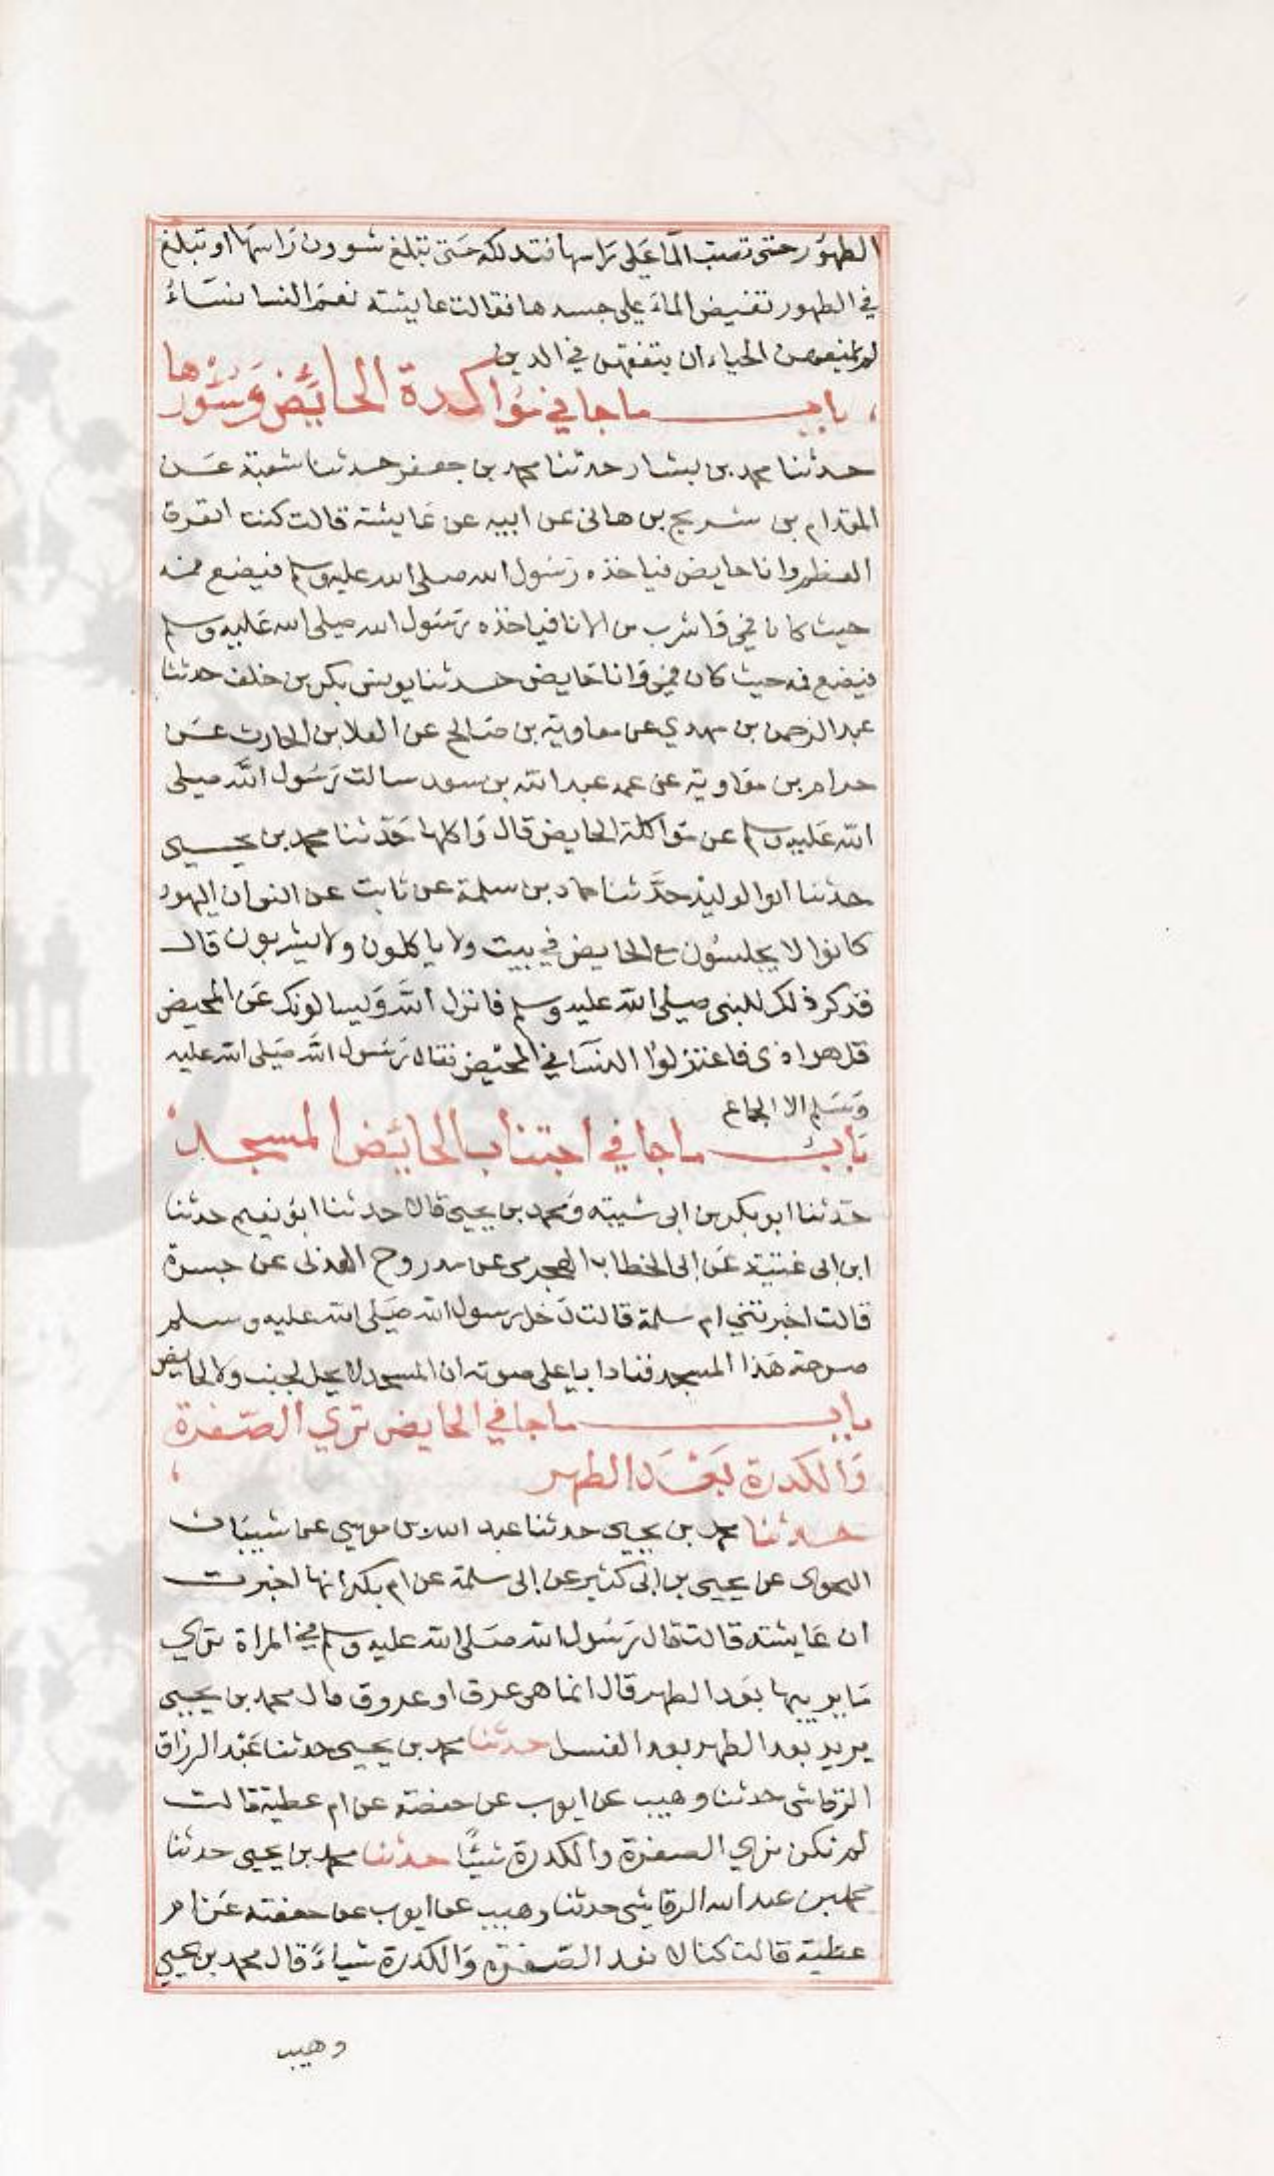 الطهور حتى تصب الما على راسها فتدلكه حتى تبلغ شوون راسها او تبلغ
في الطهور تفيض الماء على جسدها فقالت عايشة نعم النسا نساء
لم يمنعهن الحياء ان يتفقهن في الدين
باب ماجا في مواكدرة الحائض وسورها
حدثنا محمد بن بشار حدثنا محمد بن جعفر حدثنا شعبة عن
المقدام بن شريح بن هانى عن ابيه عن عايشة قالت كنت اتعرق
العظم وانا حايض فياخذه رسول الله صلى الله عليه وسلم فيضع فمه
حيث كان فمي واشرب من الانا فياخذه رسول الله صلى الله عليه وسلم
فيضع فمه حيث كان فمي وانا حايض حدثنا بكر بن خلف حدثنا
عبد الرحمن بن مهدي عن معاوية بن صالح عن العلا بن الحارث عن
حرام بن معاوية عن عمه عبد الله بن سعد سالت رسول الله صلى
الله عليه وسلم عن مواكلة الحايض قال واكلها حدثنا محمد بن يحيى
حدثنا ابو الوليد حدثنا حماد بن سلمة عن ثابت عن انس ان اليهود
كانوا لا يجلسون مع الحايض في بيت ولا ياكلون ولا يشربون قال
فذكر ذلك للنبى صلى الله عليه وسلم فانزل الله ويسالونك عن المحيض
قل هو اذى فاعتزلوا النسا في المحيض فقال رسول الله صلى الله عليه
وسلم الا الجماع
باب ماجا في اجتناب الحائض المسجد
حدثنا ابو بكر بن ابى شيبه ومحمد بن يحيى قالا حدثنا ابو نعيم حدثنا
ابن ابى غنية عن ابى الخطاب الهجرى عن مدروح الهذلى عن جسرة
قالت اخبرتني ام سلمة قالت دخل رسول الله صلى الله عليه وسلم
صرحة هذا المسجد فنادا باعلى صوته ان المسجد لا يحل لجنب ولا لحايض
باب ماجا في الحايض تري الصفرة
والكدرة بعد الطهر
حدثنا محمد بن يحيى حدثنا عبد الله بن موسي عن شيبان
النحوى عن يحيى بن ابى كثير عن ابى سلمة عن ام بكر انها اخبرت
ان عايشة قالت قال رسول الله صلى الله عليه وسلم في المراة تري
ما يريبها بعد الطهر قال انما هى عرق او عروق قال محمد بن يحيى
يريد بعد الطهر بعد الغسل حدثنا محمد بن يحيى حدثنا عبد الرزاق
الرقاشى حدثنا وهيب عن ايوب عن حفصة عن ام عطية قالت
لم نكن نري الصفرة والكدرة شيئا حدثنا محمد بن يحيى حدثنا
محمد بن عبد الله الرقاشى حدثنا وهيب عن ايوب عن حفصة عن ام
عطية قالت كنا لا نعد الصفرة والكدرة شياء قال محمد بن يحيى
وهيب